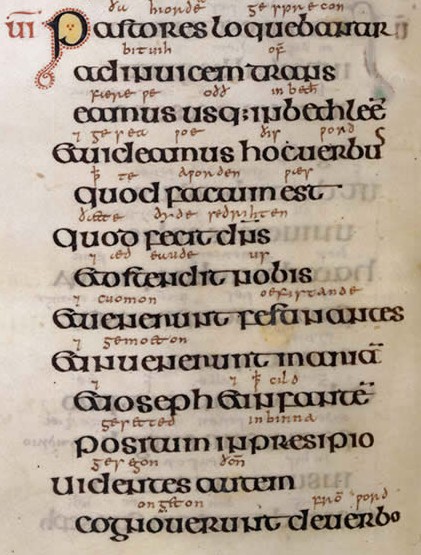 ða hiordę ge sprecon
iii Pastores loquebantur
bituih of
ad inuicem trans
fære we oðð in beth
eamus usq: in bethleē
⁊ ge sea we ðis word
& uideamus hoc uerbū
ꝥ te aworden wæs
quod factum est
dyde se drihten
quod fecit dn̄s
⁊ æd eaude us
& ostendit nobis
⁊ cuomon oefistande
& uenerunt festinantes
⁊ gemoeton
& inuenerunt mariā
⁊ ⁊ ꝥ cild
& ioseph & infantē
gesetted in binna
positum in presipio
gesegon ðoñ
uidentes autem
ongeton frō word
cognouerunt de uerbo